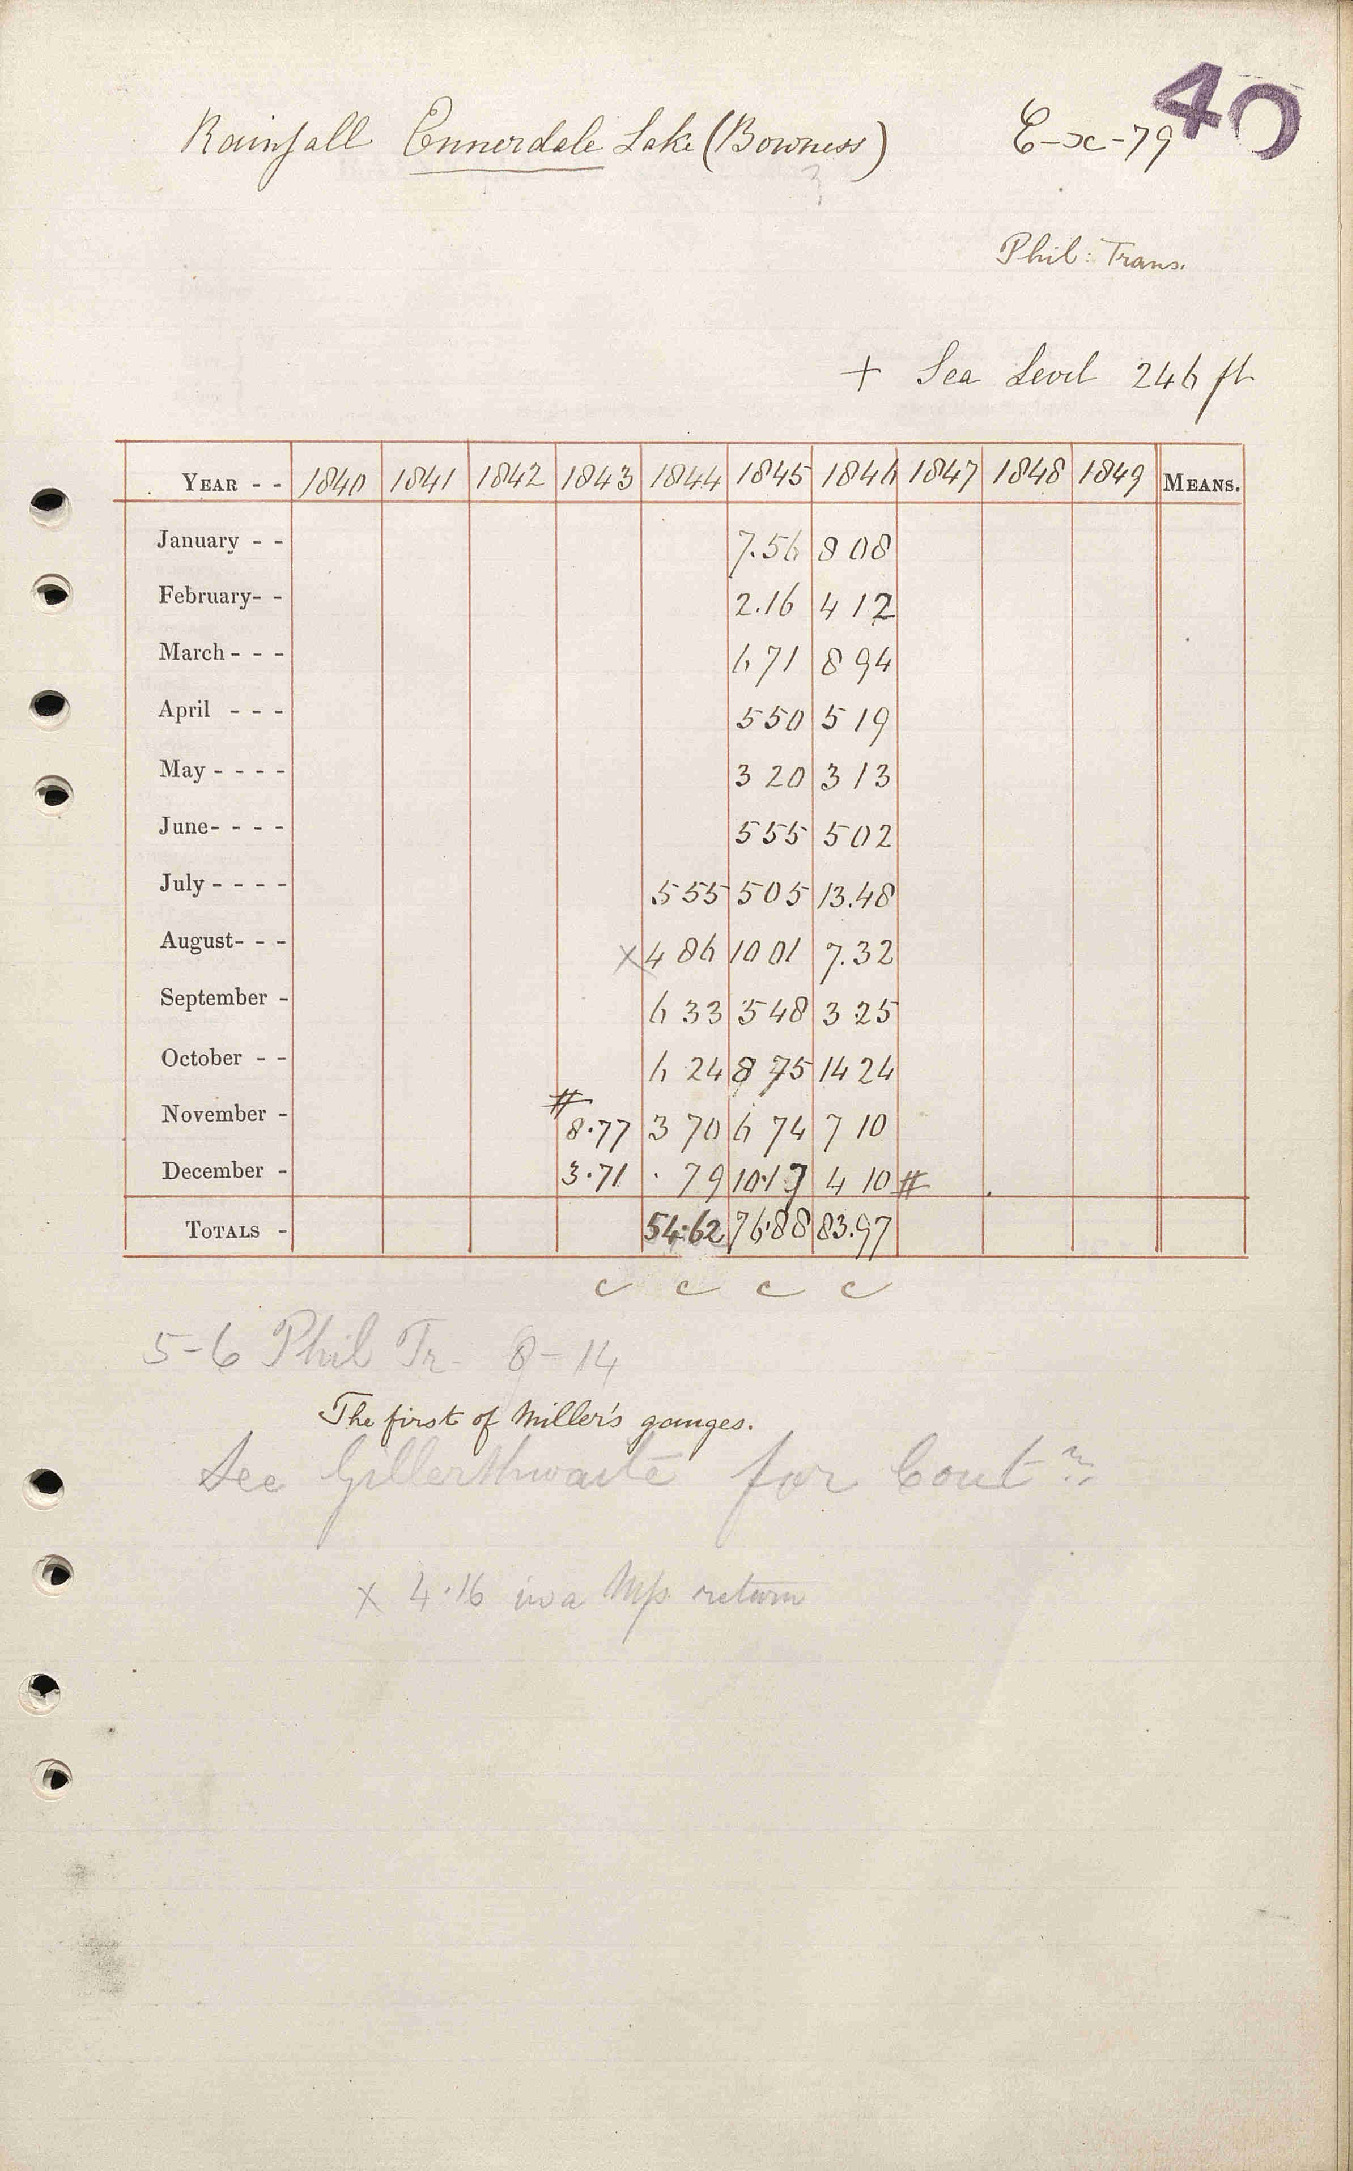 40
Rainfall Ennerdale Lake (Bowness) E-x-79
Phil: Trans.
+ Sea Level 246 ft
YEAR - - 1840 1841 1842 1843 1844 1845 1846 1847 1848 1849 MEANS.
January - - 7.56 8 08
February- - 2.16 4 12
March - - - 6 71 8 94
April - - - 5 50 5 19
May - - - - 3 20 3 13
June- - - - 5 55 5 02
July - - - - 5 55 5 05 13.48
August- - - x 4 86 10 01 7.32
September - 6 33 5 48 3 25
October - - 6 24 8 75 14 24
November - # 8.77 3 70 6 74 7 10
December - 3.71 . 79 10.17 4 10 #
TOTALS - 54.62 76.88 83.97
c c c c
5-6 Phil Tr. 8-14
The first of Miller's gauges.
See Gillerthwaite for Cont n
x 4.16 in a Mps return